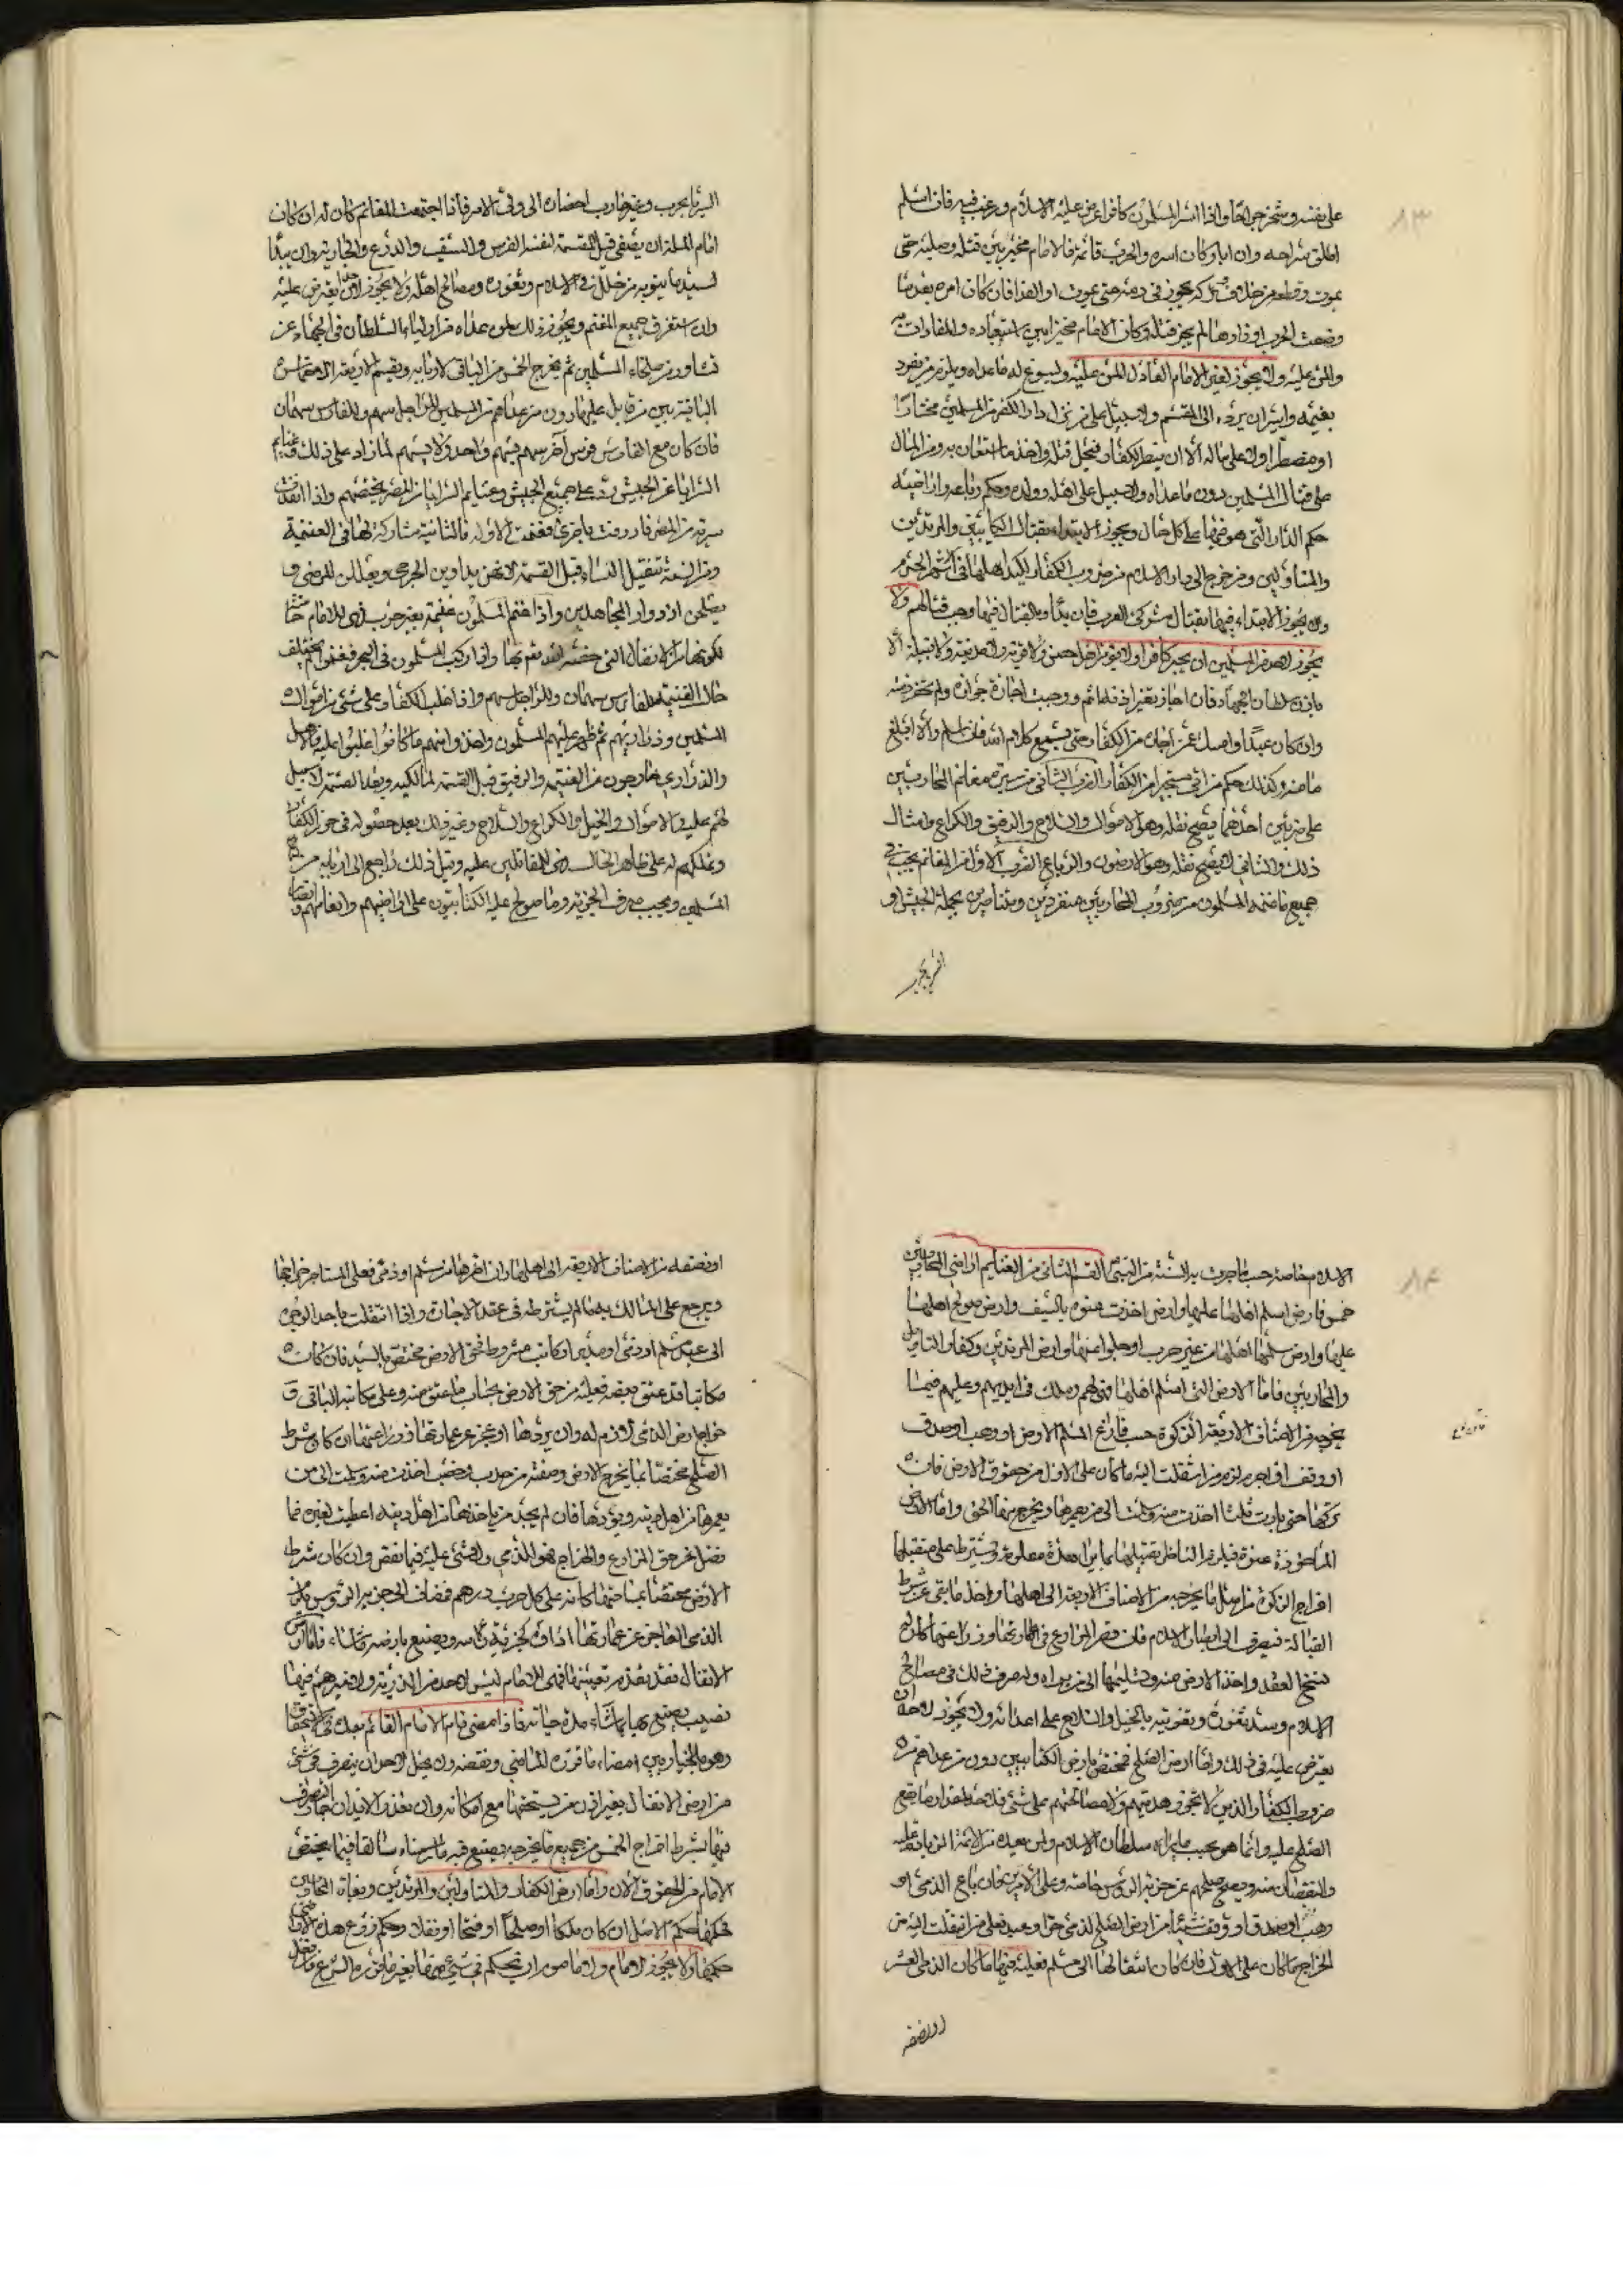 ٨٣
على نفسه وشخرجرالقا واذا اسر المسلمون كافرا عرض عليه الاسلام ورغب فيه فان اسلم
اطلق سراحه وان ابا وكان اسره والحرب قائمة فالامام مخير بين قتله وصلبه حتى
يموت وقطعه من خلاف وتركه يجوز في دمه حتى يموت او الفدا فان كان امره بعد ما
وضعت الحرب اوزارها لم يجز قتله وكان الامام مخيرا بين استعباده والمفادات به
والمن عليه ولا يجوز لغير الامام العادل المن عليه ويسوغ له ما عداه ويلزم من يفرد
بغنيمه وايسران يرده الى المقسم ولا سبيل على من نزل دار الكفر من المسلمين مختارا
او مضطرا ولا على ماله الا ان ينصر الكفار فيحل قتله واخذ ما استعان به من المال
على قتال المسلمين دون ما عداه ولا سبيل على اهله وولده وحكم رباعه واراضيه
حكم الدار التي هو فيها على كل حال ويجوز الابتداء بقتال الكتابيين والمرتدين
والمتاولين ومن خرج الى ديار الاسلام من ضروب الكفار لكيد اهلها في اشهر الحرم
ولا يجوز الابتداء فيها بقتال مشركي العرب فان بدأوا بالقتال فيها وجب قتالهم ولا
يجوز لاحد من المسلمين ان يجير كافرا ولا يؤمن اهل حصن ولا قرية ولا مدينة ولا قبيلة الا
باذن سلطان الجهاد فان اجار بغير اذنه اثم ووجبت اجازة جواره ولم تخفر ذمته
وان كان عبدا واصل عمن اجاره من الكفار حتى يسمع كلام الله فان اسلم والا ابلغ
مامنه وكذلك حكم من اتى مستجيرا من الكفار الضرب الثاني من سيرة مغانم المحاربين
على ضربين احدهما يصح نقله وهو الاموال والسلاح والرقيق والكراع وامثال
ذلك والثاني لا يصح نقله وهو الارضون والرباع الضرب الاول من المغانم يجب في
جميع ما غنمه المسلمون من ضروب المحاربين منفردين ومتناصرين بجملة الجيش او
السر بحرب
السرايا بحرب وغير حارب احضاره الى ولي الامر فاذا اجتمعت المغانم كان له ان كان
امام الملة ان يصفي قبل القسمة لنفسه الفرس والسيف والدرع والجارية وان يبدا
لسد ما ينوبه من خلل في الاسلام وثغوره ومصالح اهله ولا يجوز لاحد ان يعترض عليه
وان استغرق جميع المغنم ويجوز ذلك لمن عداه من اولياء السلطان في الجهاد عن
تشاور من صلحاء المسلمين ثم يخرج الخمس من الباقي لاربابه ويقسم الاربعة الاخماس
الباقية بين من قاتل عليها دون من عداهم من المسلمين للراجل سهم وللفارس سهمان
فان كان مع الفارس فرس آخر سهم بسهم واحد ولا يسهم لما زاد على ذلك وغنايم
السرايا عن الجيش رد على جميع الجيش وغنايم السرايا من المصر يخصهم واذا انفذت
سرية من المصر فاردفت باخرى فغنمت الاولى فالثانية مشاركة لها في الغنيمة
ومن السنة تنفيل النساء قبل القسمة لانهن يداوين الجرحى ويعللن المرضى و
يصلحن ازواد المجاهدين واذا غنم المسلمون غنيمة بغير حرب فهي للامام خاصة
لكونها من الانفال التي خصه الله تعالى بها واذا ركب المسلمون في البحر فغنموا لم يختلف
حال الغنيمة للفارس سهمان وللراجل سهم واذا غلب الكفار على شيء من اموال
المسلمين وذراريهم ثم ظهر عليهم المسلمون واخذوا منهم ما كانوا غلبوا عليه فالاهل
والذراري خارجون من الغنيمة والرقيق قبل القسمة لمالكيه وبعد القسمة لا سبيل
لهم عليه والاموال والخيل والكراع والسلاح وغير ذلك بعد حصوله في حرز الكفار
وتملكهم له على ظاهر الحال فهي للمقاتلين عليه وقبل ذلك راجع الى اربابه من
المسلمين ويجب صرف الجزية وما صولح عليه الكتابيون على اراضيهم وانعامهم وانصار
٨٤
الاسلام خاصة حسب ما جرت به السنة من النبي القسم الثاني من الغنايم اراضي المحاربين
خمس فارض اسلم اهلها عليها وارض اخذت عنوة بالسيف وارض صولح اهلها
عليها وارض سلمها اهلها من غير حرب او جلوا عنها وارض المرتدين وكفار التاويل
والمحاربين فاما الارض التي اسلم اهلها فهي لهم وملك في ايديهم وعليهم فيما
يخرجه من الاصناف الاربعة الزكوة حسب فان باع المسلم الارض او وهب او صدق
او وقف او اجر لزم من انتقلت اليه ما كان على الاول من حقوق الارض فان
تركها حتى بارت ثلثا اخذت منه وسلمت الى من يعمرها ويخرج منها الحق واما الارض
الماخوذة عنوة فيلزم الناظر تقبيلها بما يراه مدة معلومة ويشترط على متقبلها
اخراج الزكوة من اصل ما يخرجه من الاصناف الاربعة الى اهلها واخذ ما بقي عن شرط
القبالة فيصرف الى انصار الاسلام فان قصر المزارع في عمارتها وزراعتها كان له
فسخ العقد واخذ الارض منه وتسليمها الى من يراه وله صرف ذلك في مصالح
الاسلام وسد ثغوره وتقويته بالخيل والسلاح على اعدائه ولا يجوز لاحد ان
يعترض عليه في ذلك واما ارض الصلح فمختص بارض الكتابيين دون من عداهم من
ضروب الكفار الذين لا يجوز هدنتهم ولا مصالحتهم على شيء فلا حد لمقدار ما يقع
الصلح عليه وانما هو بحسب ما يراه سلطان الاسلام ولمن بعده من الائمة الزيادة عليه
والنقصان منه ويصح صلحهم عن جزية الرؤس خاصة وعلى الامرين فان باع الذمي او
وهب او صدق او وقف شيئا من ارض الصلح لذمي حر او عبد فعلى من انتقلت اليه من
الخراج ما كان على الاول فان كان انتقالها الى مسلم فعليه فيها ما كان الذمي العشر
او نصفه
او نصفه من الاصناف الاربعة الى اهلها وان اجرها من مسلم او ذمي فعلى المستاجر خراجها
ويرجع على المالك به ما لم يشترطه في عقد الاجارة واذا انتقلت باحد الوجوه
الى عبد مسلم او ذمي او مدبر او كاتب مشروط فحق الارض مختص بالسيد فان كان
مكاتبا قد عتق بعضه فعليه من حق الارض بحساب ما عتق منه وعلى مكاتبه الباقي و
خراج ارض الذمي لازم له وان بردها او عجز عن عمارتها وزراعتها ان كان شرط
الصلح مختصا بما يخرج الارض وصفته من جدب وخصب اخذت منه وسلمت الى من
يعمرها من اهل دينه ويؤدها فان لم يجد من ياخذها من اهل دينه اعطيت لغيره فما
فضل عن حق المزارع والخراج فهو للذمي ولا شيء عليه فيما نقص وان كان شرط
الارض مختصا بمساحتها كانه على كل جريب درهم فضاف الى جزية الرؤس فان
الذمي العاجز عن عمارتها اداه كجزية راسه ويصنع بارضه ما شاء فاما ارض
الانفال فقد تقدم تعيينها فهي للامام ليس لاحد من الذرية ولا غيرهم فيها
نصيب يصنع بها ما شاء مدة حياته فاذا مضى قام الامام القائم بعده في استحقاق
وهو بالخيار بين امضاء ما قرره الماضي ونقضه ولا يحل لاحد ان يتصرف في شيء
من ارض الانفال بغير اذن من يستحقها مع امكانه وان تعذر الايذان جاز التصرف
فيها بشرط اخراج الخمس من جميع ما يخرجه يصنع فيه ما رسمناه سالفا فيما يختص
الامام من الحقوق في الان واما ارض الكفار والمتاولين والمرتدين وبغاة المحاربين
فحكمها حكم الاصل ان كان ملكا او صلحا او فتحا او نفلا وحكم زروع هذه الاراضي
حكمها ولا يجوز لامام ولا مامور ان يحكم في شيء منها بغير ما قرره الشرع فان فعل